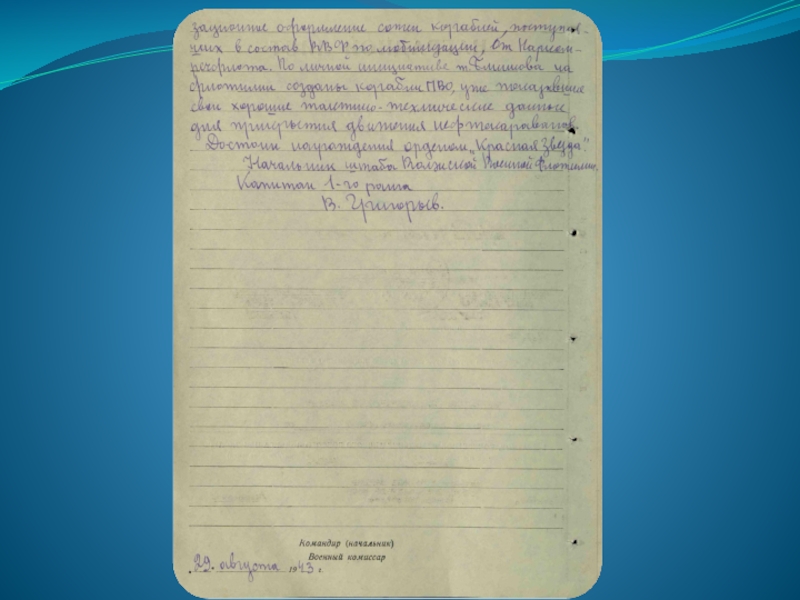 зационное оформление сотен кораблей, поступаю-
щих в состав ВВФ по мобилизации, от Нарком-
речфлота. По личной инициативе т. на
флотилии созданы корабли ПВО, уже показавшие
свои хорошие тактико-технические данные
для прикрытия движения нефтекараванов.
Достоин награждения орденом „Красная Звезда".
Начальник штаба Волжской Военной Флотилии.
Капитан 1-го ранга
В. Григорьев.
Командир (начальник)
Военный комиссар
„29" августа 1943 г.